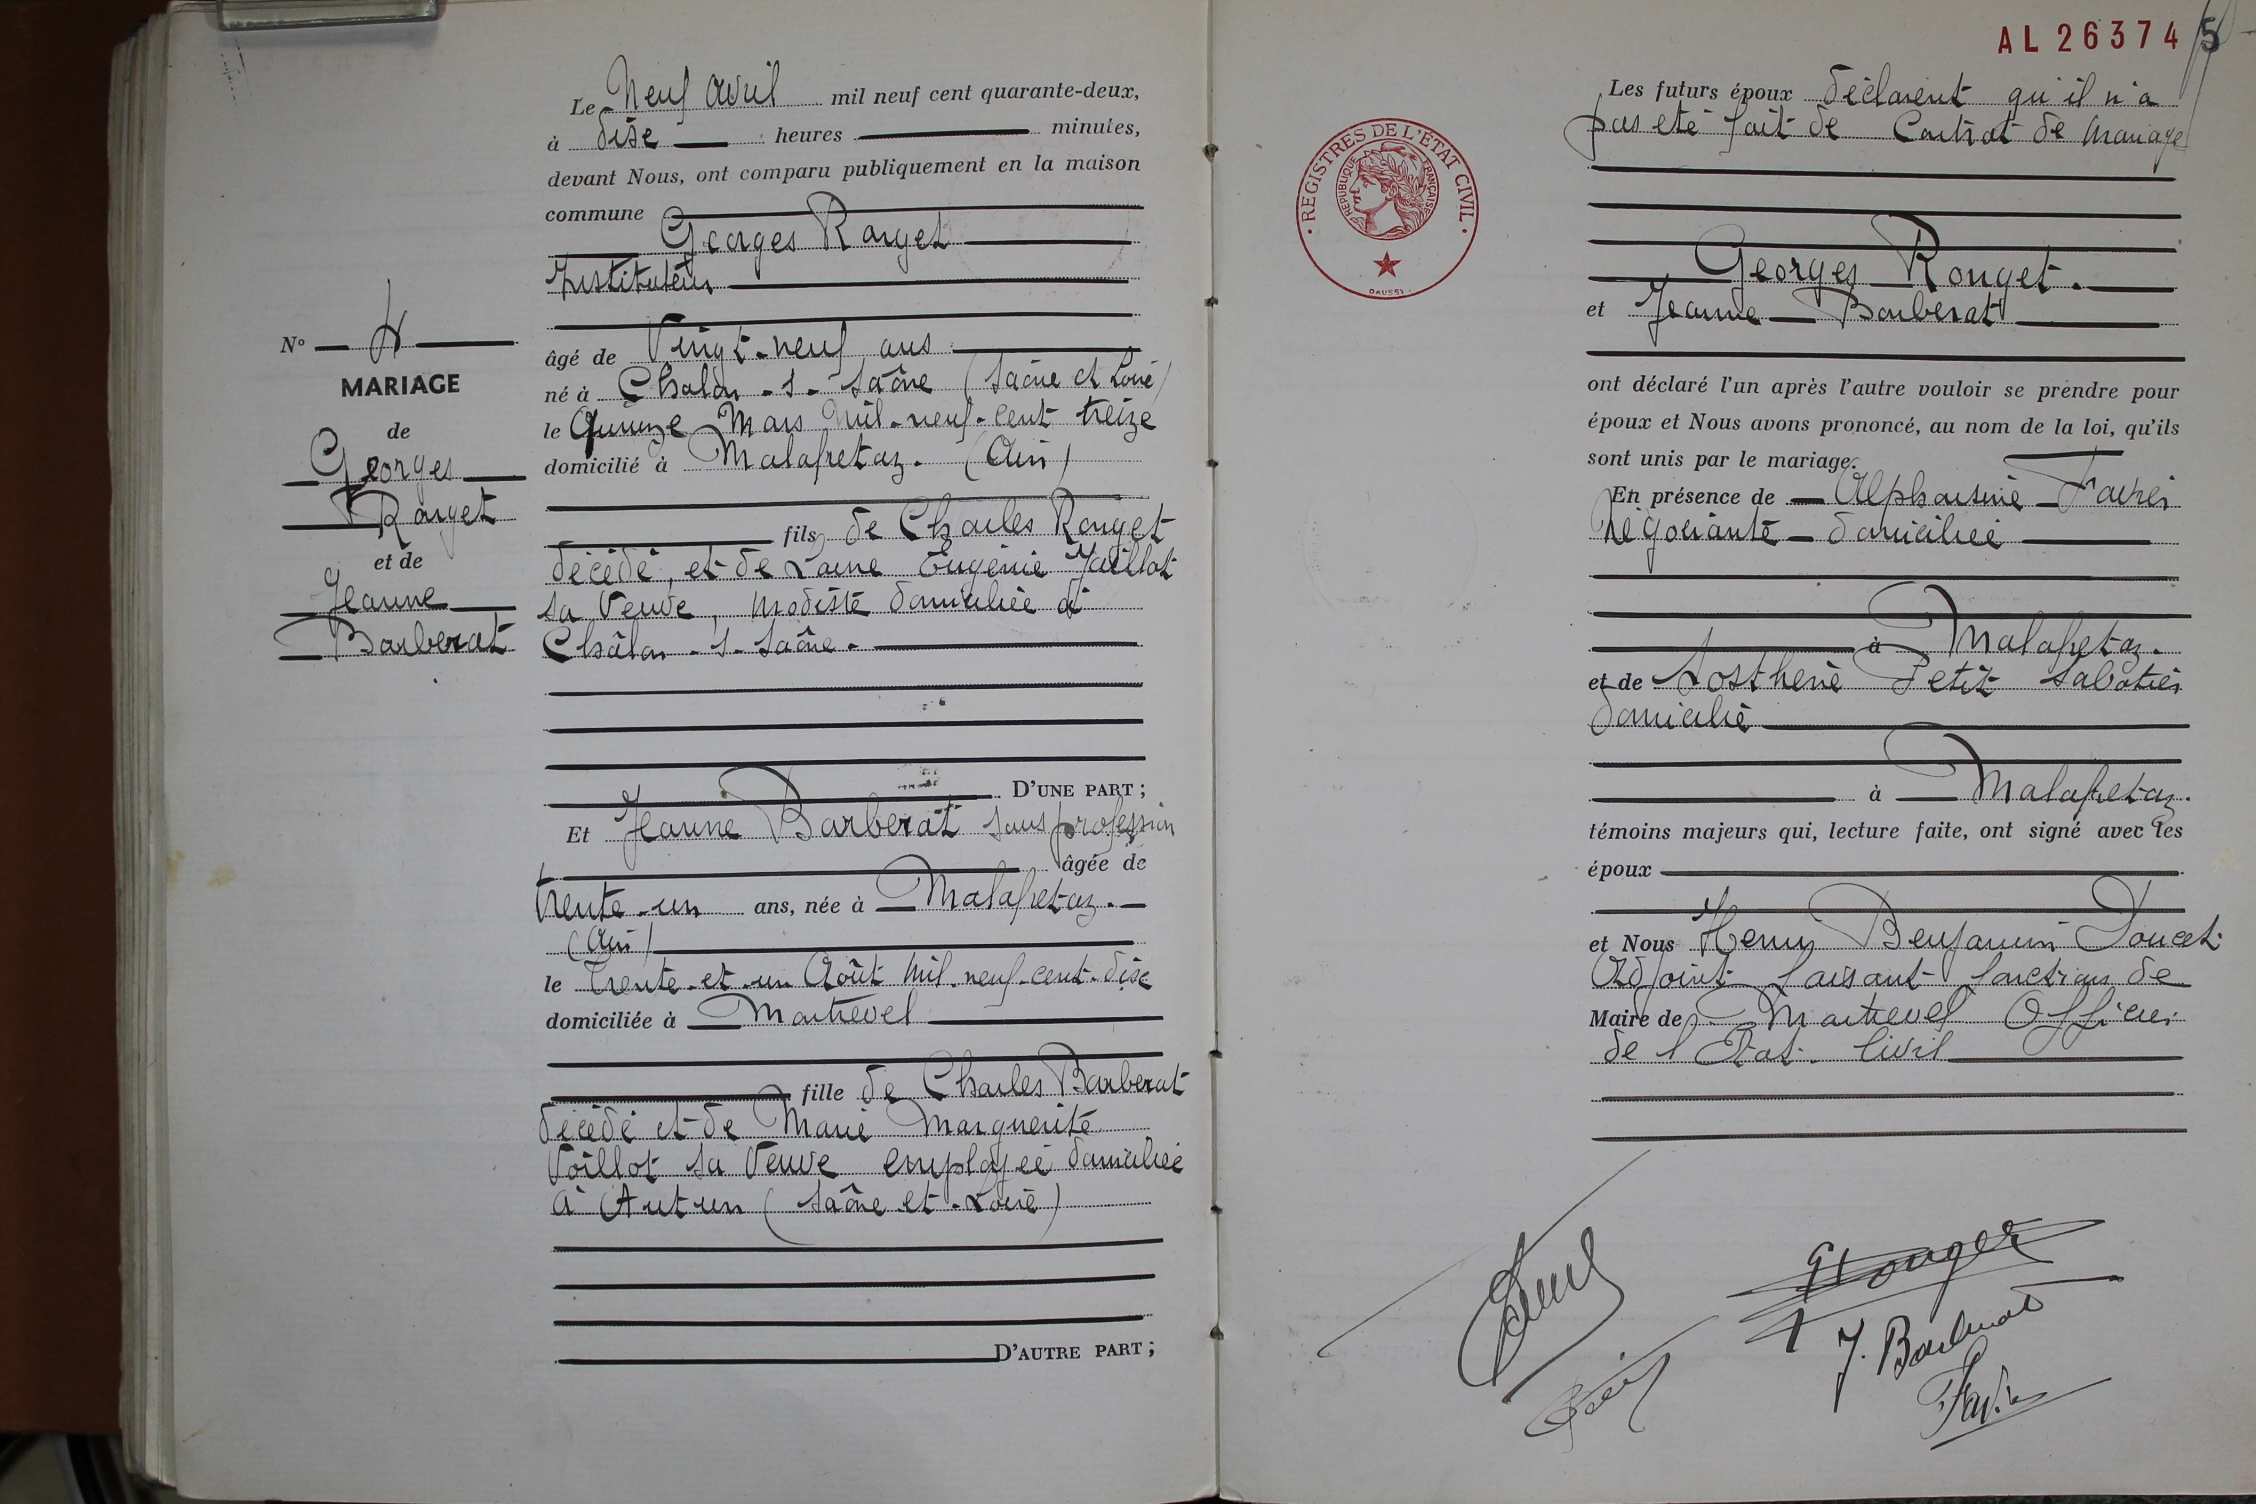 Le Neuf Avril mil neuf cent quarante-deux,
à dise heures minutes,
devant Nous, ont comparu publiquement en la maison
commune
Georges Rouget
Instituteur
N° 4
MARIAGE
de
Georges
Rouget
et de
Jeanne
Barberat
âgé de Vingt-neuf ans
né à Chalon-s-Saône (Saône et Loire)
le Quinze Mars Mil-neuf-cent treize
domicilié à Malafretaz. (Ain)
fils de Charles Rouget
décédé, et de Laure Eugénie Jaillot
sa Veuve, modiste domiciliée à
Châlon-s-Saône.
D'UNE PART ;
Et Jeanne Barberat sans profession
âgée de
trente-un ans, née à Malafretaz.
(Ain)
le Trente-et-un Août Mil-neuf-cent-dise
domiciliée à Montrevel
fille de Charles Barberat
décédé et de Marie Marguerite
Voillot sa Veuve employée domiciliée
à Autun (Saône-et-Loire)
D'AUTRE PART ;
AL 26374
5
REGISTRES DE L'ÉTAT CIVIL
RÉPUBLIQUE FRANÇAISE
DAUSSY
Les futurs époux déclarent qu'il n'a
pas été fait de Contrat de Mariage
Georges Rouget.
et Jeanne Barberat
ont déclaré l'un après l'autre vouloir se prendre pour
époux et Nous avons prononcé, au nom de la loi, qu'ils
sont unis par le mariage.
En présence de Alphonsine Favier
négociante domiciliée
à Malafretaz.
et de Sosthène Petit Sabotier
domicilié
à Malafretaz.
témoins majeurs qui, lecture faite, ont signé avec les
époux
et Nous Henry Benjamin Doucet
Adjoint faisant fonction de
Maire de Montrevel Officier
de l'Etat Civil
G Rouget
J. Barberat
Favier